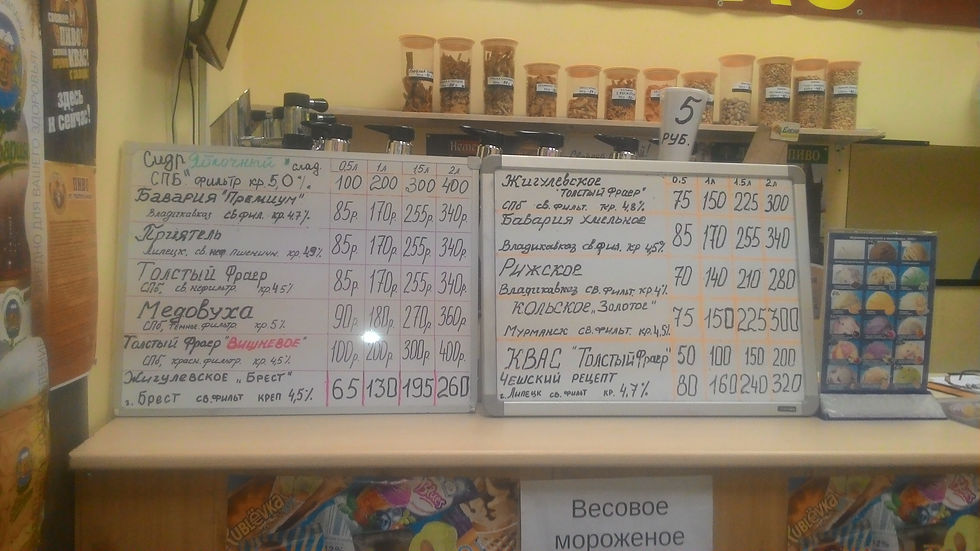 ПИВО!
КВАС!
ЗДЕСЬ
и СЕЙЧАС!
ДЛЯ ВАШЕГО ЗДОРОВЬЯ!
ПИВО
5
РУБ.
ПИВО
Сидр "Яблочный" слад. 0,5л 1л 1.5л 2л
СПБ фильтр кр. 5,0%. 100 200 300 400
Бавария "Премиум"
Владикавказ св. фил. кр 4.7% 85р. 170р. 255р. 340р.
Приятель
Липецк, св. неф. пшеничн. кр. 4,9% 85р. 170р. 255р. 340р.
Толстый Фраер
СПб св. нефильтр. кр. 4.5% 85р. 170р. 255р. 340р.
Медовуха
СПб, тёмное фильтр. кр. 5% 90р. 180р. 270р. 360р.
Толстый Фраер "Вишневое"
СПб, красн. фильтр. кр. 4.5% 100р. 200р. 300р. 400р.
Жигулевское „Брест"
г. Брест св. фильт креп 4,5% 65 130 195 260
Жигулевское 0.5 1л 1.5л 2л
"Толстый Фраер"
СПб св. фильт. кр. 4,8% 75 150 225 300
Бавария хмельное
Владикавказ св. фил. кр 4,5% 85 170 255 340
Рижское
Владикавказ св. фильт кр 4% 70 140 210 280
КОЛЬСКОЕ „Золотое"
Мурманск св. фильт. кр. 4,5% 75 150 225 300
КВАС "Толстый Фраер" 50 100 150 200
Чешский рецепт
г. Липецк св. фильт кр. 4,7% 80 160 240 320
Весовое
мороженое